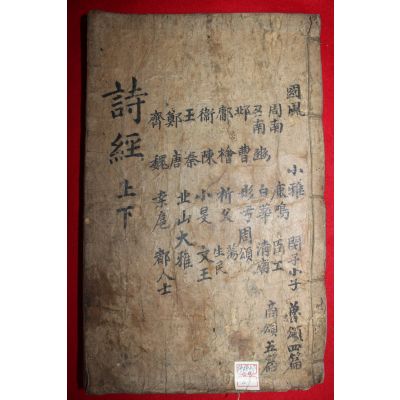 國風 小雅 閔予小子 魯頌四篇
周南 鹿鳴 臣工 商頌五篇
召南 豳 白華 清廟
邶 曹 彤弓 周頌
鄘 檜 祈父 蕩 生民
衛 陳 小旻 文王
王 秦 北山 大雅
鄭 唐
齊 魏 桑扈 都人士
詩經 上下